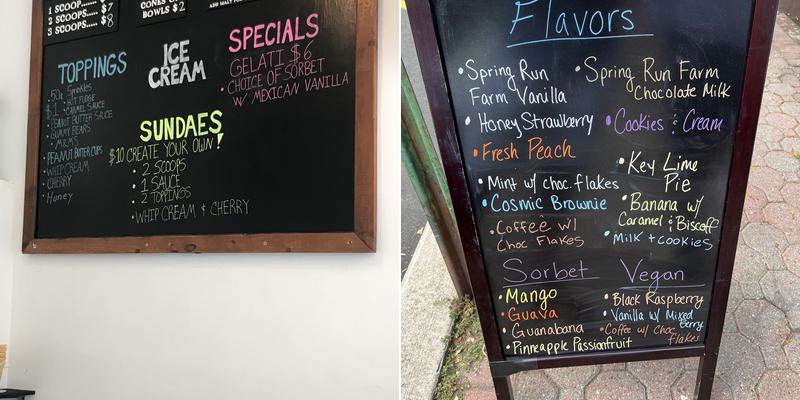 1 SCOOP...... $
2 SCOOPS..... $7
3 SCOOPS..... $8
CONES
BOWLS $2
AND MALT
TOPPINGS
50¢ Sprinkles
$1 • HOT FUDGE
• CARAMEL SAUCE
• PEANUT BUTTER SAUCE
• GUMMY BEARS
• M&M'S
• PEANUT BUTTER CUPS
• WHIP CREAM
• CHERRY
• Honey
ICE
CREAM
SPECIALS
GELATI $6
• CHOICE OF SORBET
W/ MEXICAN VANILLA
SUNDAES!
$10 CREATE YOUR OWN
• 2 SCOOPS
• 1 SAUCE
• 2 TOPPINGS
• WHIP CREAM & CHERRY
Flavors
• Spring Run
Farm Vanilla
• Honey Strawberry
• Fresh Peach
• Mint w/ choc. flakes
• Cosmic Brownie
• Coffee w/
Choc Flakes
• Spring Run Farm
Chocolate Milk
• Cookies & Cream
• Key Lime
Pie
• Banana w/
Caramel & Biscoff
• Milk + cookies
Sorbet
• Mango
• Guava
• Guanabana
• Pinneapple Passionfruit
Vegan
• Black Raspberry
• Vanilla w/ Mixed
Berry
• Coffee w/ Choc
flakes